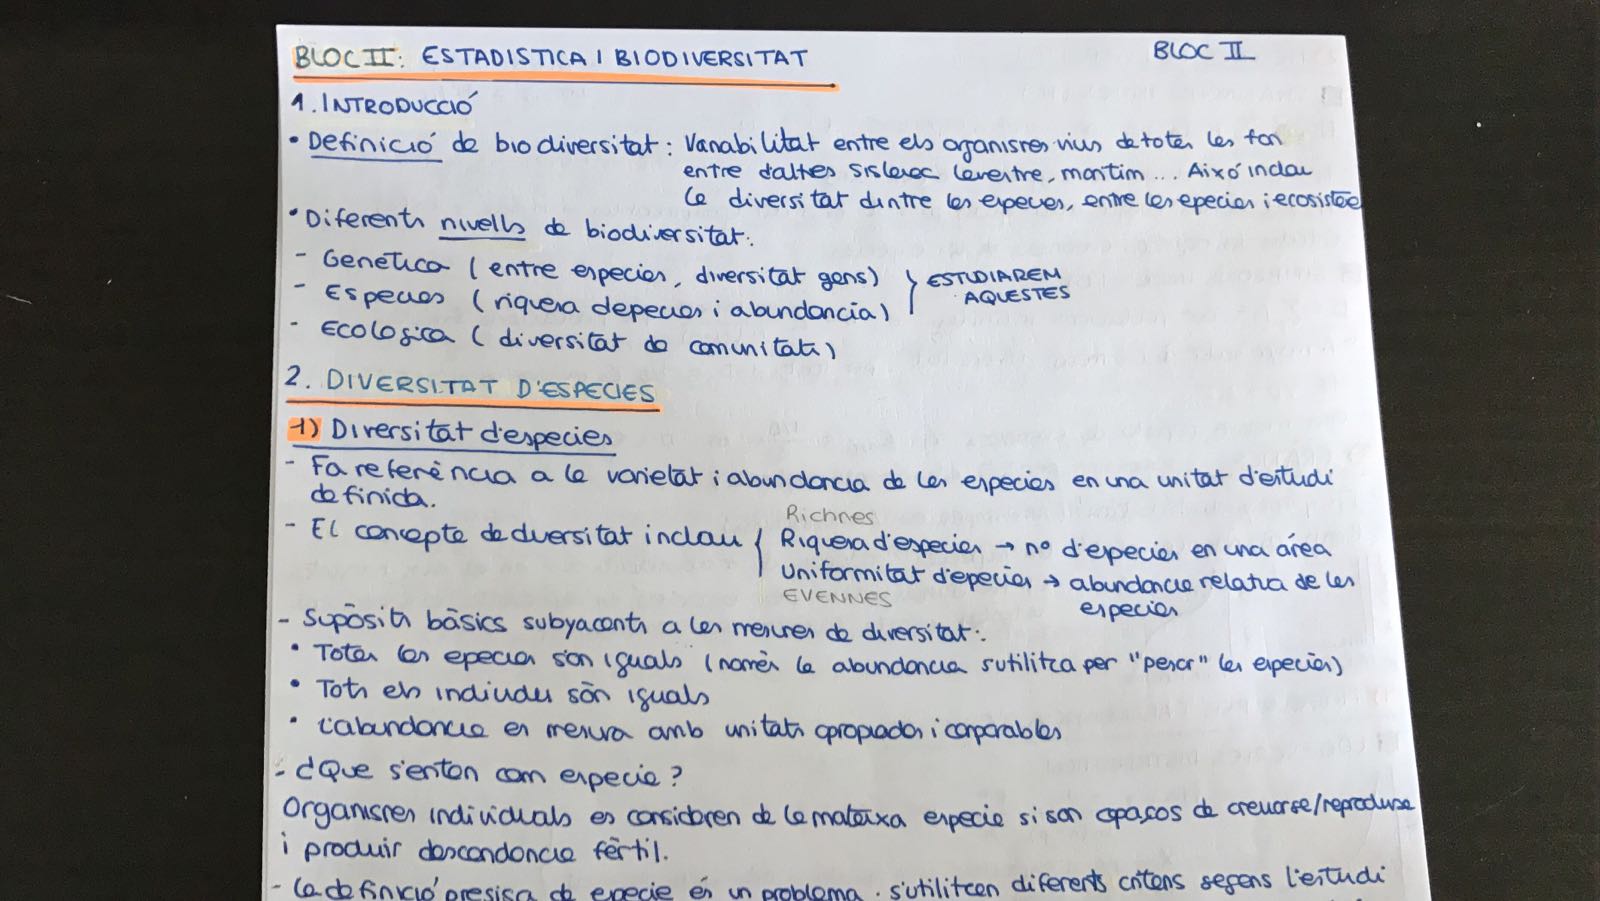 BLOC II: ESTADISTICA I BIODIVERSITAT
BLOC II
1. INTRODUCCIÓ
• Definició de biodiversitat: Variabilitat entre els organismes vius de totes les fon
entre d'altres terrestre, maritim... Aixó inclou
la diversitat dintre les especies, entre les especies i ecosistee
• Diferents nivells de biodiversitat:
- Genètica (entre especies, diversitat gens)
- Especies (riquesa d'especies i abundancia)
- Ecologica (diversitat de comunitats)
ESTUDIAREM
AQUESTES
2. DIVERSITAT D'ESPECIES
1) Diversitat d'especies
- Fa referència a la varietat i abundancia de les especies en una unitat d'estudi
definida.
- El concepte de diversitat inclou
Richnes
Riquesa d'especies → nº d'especies en una área
Uniformitat d'epecies → abundancia relativa de les
especies
EVENNES
- Supòsits bàsics subyacents a les mesures de diversitat:
• Totes les epecies són iguals (només la abundancia s'utilitza per "pesar" les especies)
• Tots els individus són iguals
• L'abundancia es mesura amb unitats apropiades i comparables
- ¿Que s'enten com especie?
Organismes individuals es consideren de la mateixa especie si son capaços de creuarse/reproduirse
i produir descendencia fèrtil.
- La definició presisa de especie és un problema. s'utilitzen diferents criteris segons l'estudi